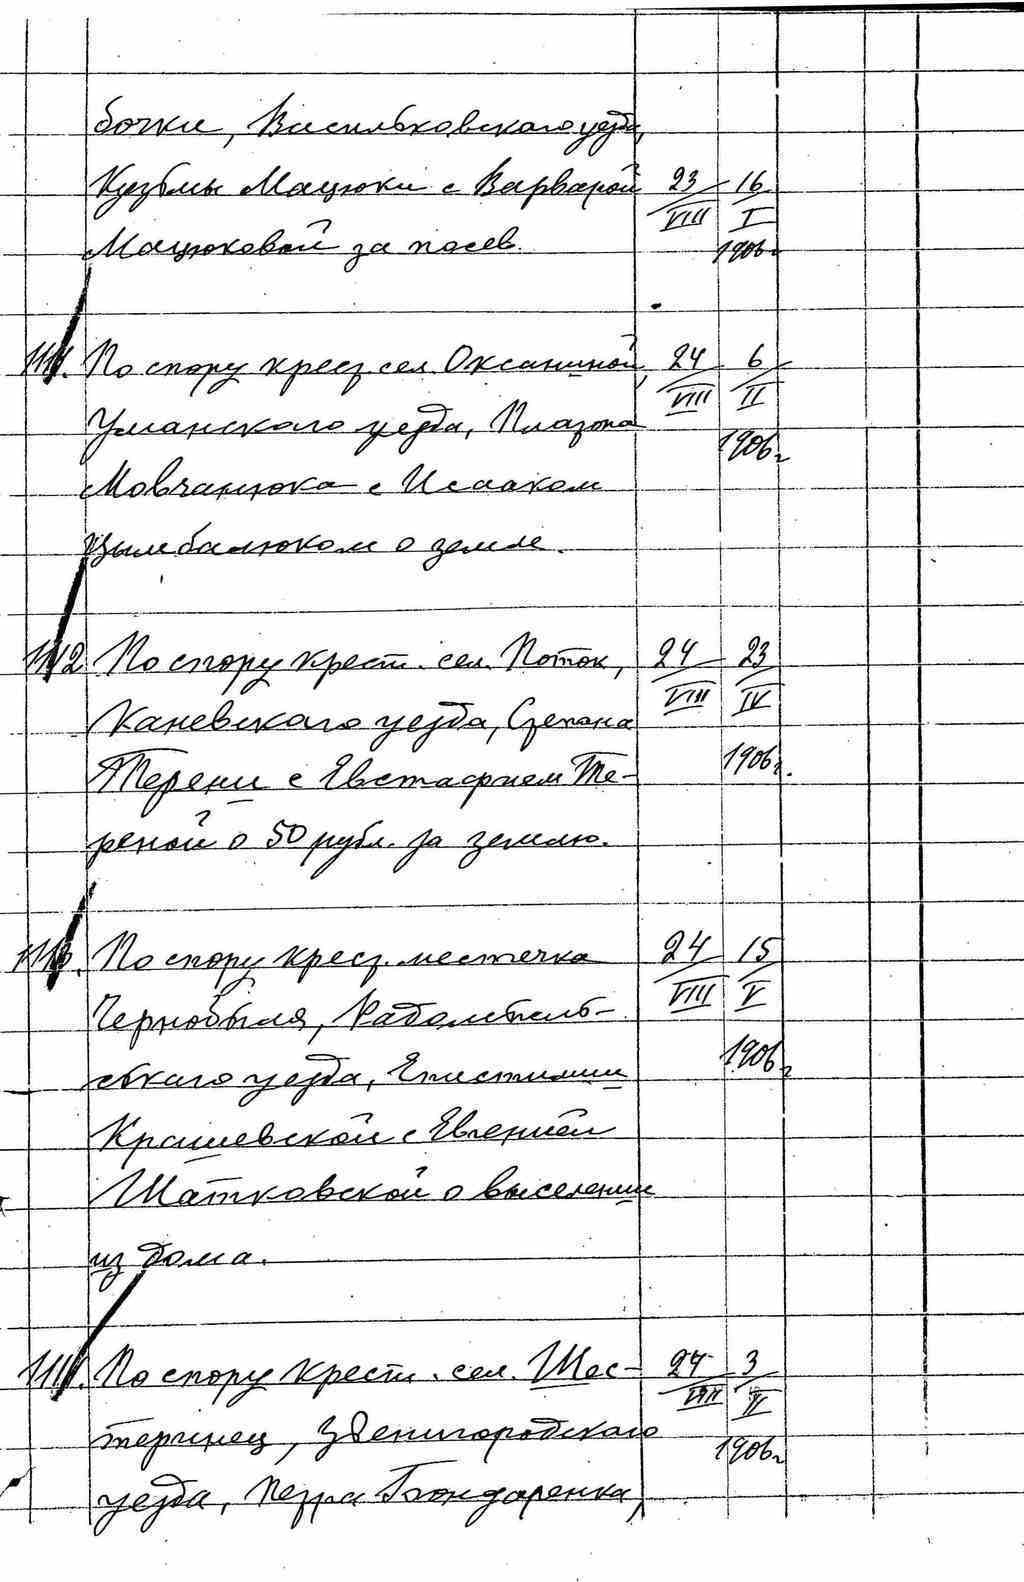 бочки, Васильковского уезда,
Кузьмы Мацюки с Варварой 23/VIII 16/I
Мацюковой за посев. 1906г
1111. По спору крест. сел. Оксаниной, 24/VIII 6/II
Уманского уезда, Платона 1906г
Мовчанюка с Исааком
Цымбалюком о земле.
1112 По спору крест. сел. Поток, 24/VIII 23/IV
Каневского уезда, Степана
Терени с Евстафием Те- 1906г.
реной о 50 рубл. за землю.
1113. По спору крест. местечка 24/VIII 15/V
Чернобыля, Радомысль-
ского уезда, Епистимии 1906г
Крашевской с Евгенией
Шатковской о выселении
из дома.
1114. По спору крест. сел. Шес- 24/VIII 3/II
теринец, Звенигородского 1906г
уезда, Петра Бондаренка,